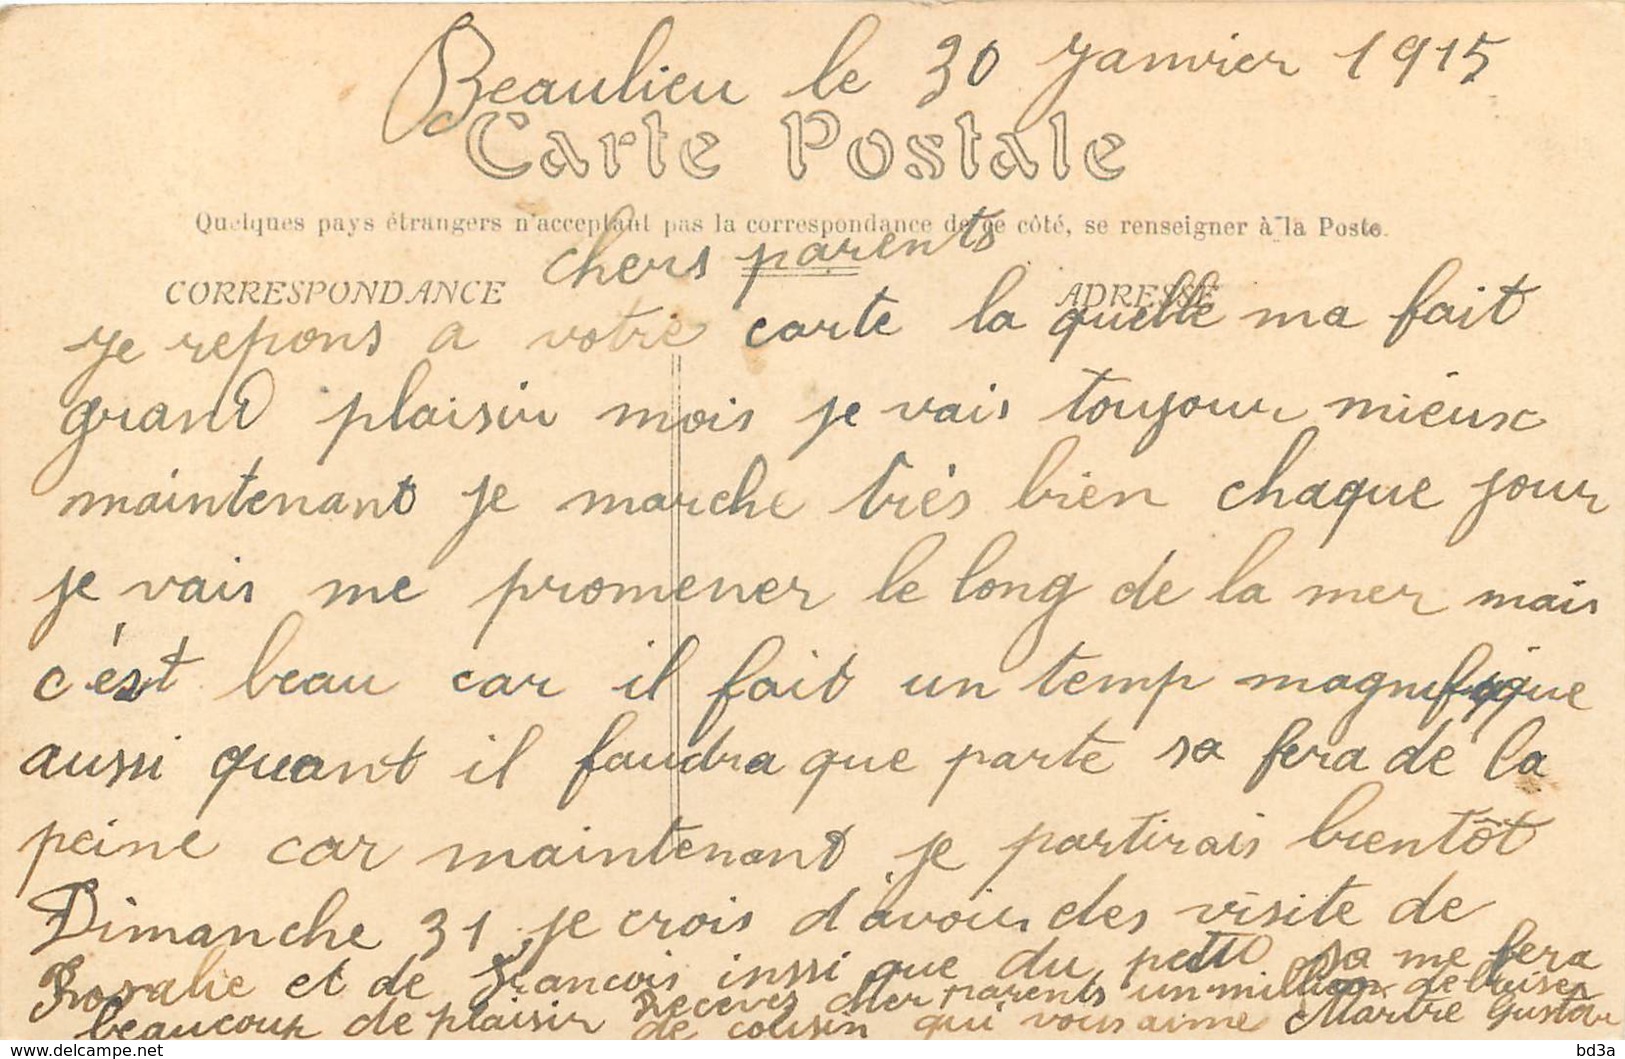 Beaulieu le 30 Janvier 1915
Carte Postale
Quelques pays étrangers n'acceptant pas la correspondance de ce côté, se renseigner à la Poste.
chers parents
CORRESPONDANCE
ADRESSE
je repons a votre carte la quelle ma fait
grand plaisir mois je vais toujour mieux
maintenant je marche très bien chaque jour
je vais me promener le long de la mer mais
c'est beau car il fait un temp magnifique
aussi quant il faudra que parte sa fera de la
peine car maintenant je partirais bientôt
Dimanche 31 je crois d'avoir des visite de
Rosalie et de François inssi que du petit sa me fera
beaucoup de plaisir Recevez cher parents un million de baiser
de cousin qui vous aime Martre Gustav
www.delcampe.net
bd3a